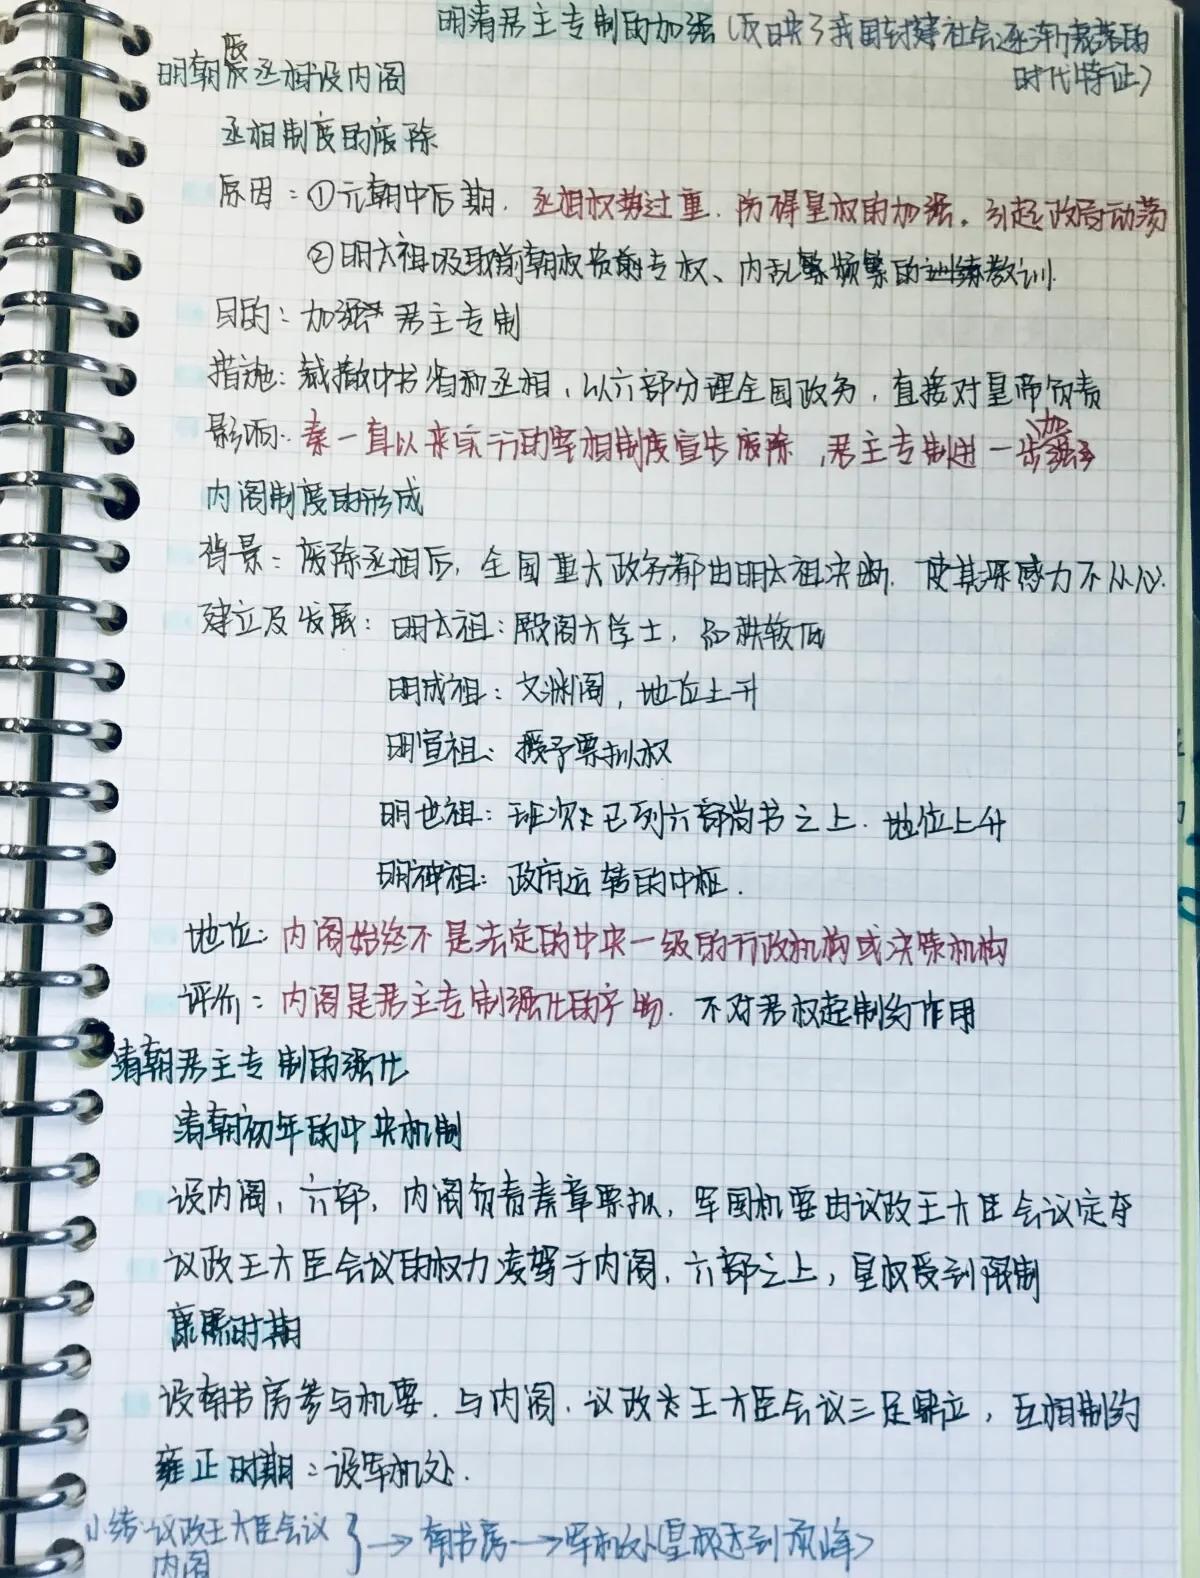 明清君主专制的加强(反映了我国封建社会逐渐衰落的
时代特征)
明朝废丞相设内阁
丞相制度的废除
原因:①元朝中后期.丞相权势过重.防碍皇权的加强.引起政局动荡
②明太祖吸取前朝权贵专权、内乱频繁的教训.
目的:加强君主专制
措施:裁撤中书省和丞相,以六部分理全国政务,直接对皇帝负责
影响:秦一直以来实行的宰相制度宣告废除,君主专制进一步加强
内阁制度的形成
背景:废除丞相后,全国重大政务都由明太祖决断.使其深感力不从心.
建立及发展:明太祖:殿阁大学士,品秩较低
明成祖:文渊阁,地位上升
明宣祖:授予票拟权
明世祖:班次已列六部尚书之上.地位上升
明神祖:政府运转的中枢.
地位:内阁始终不是法定的中央一级的行政机构或决策机构
评价:内阁是君主专制强化的产物.不对君权起制约作用
清朝君主专制的强化
清朝初年的中央机制
设内阁,六部,内阁负责奏章票拟,军国机要由议政王大臣会议定夺
议政王大臣会议的权力凌驾于内阁.六部之上,皇权受到限制
康熙时期
设南书房参与机要.与内阁.议政王大臣会议三足鼎立,互相制约
雍正时期:设军机处.
小结:议政王大臣会议
内阁 }→南书房→军机处(皇权达到顶峰)